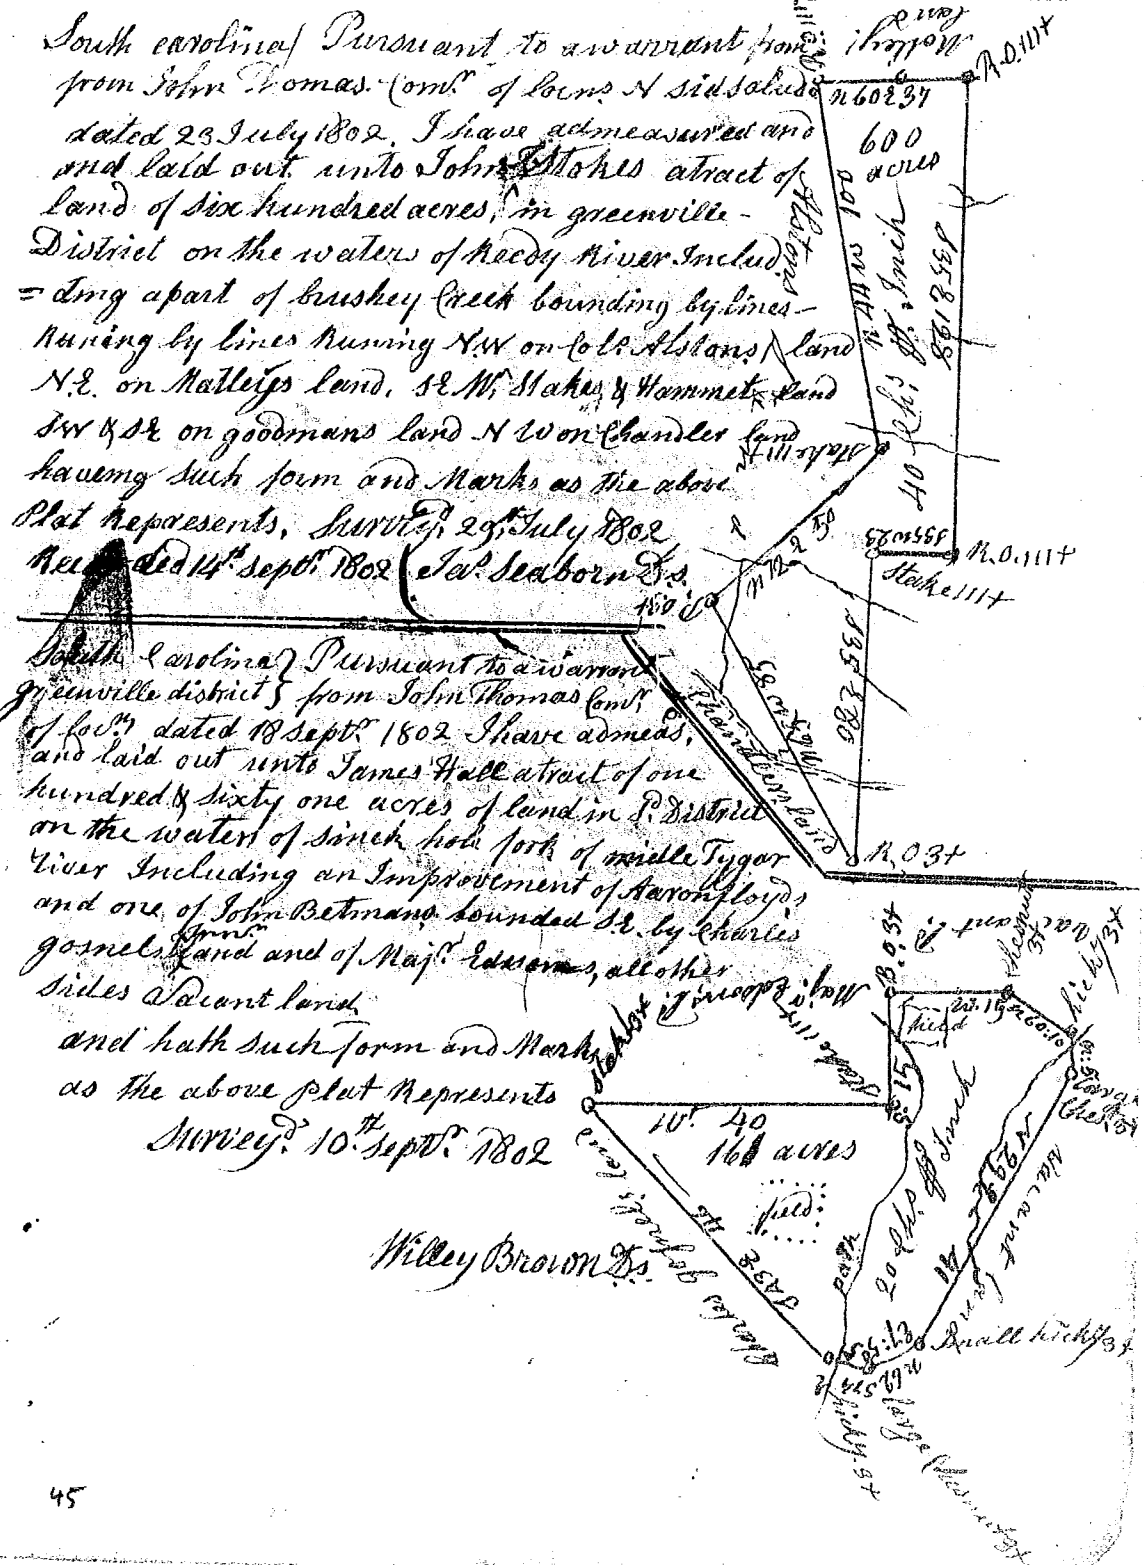 South carolina) Pursuant to a warrant from
from John Thomas Comr. of locns. N sid saluda
dated 23 July 1802. I have admeasured and
and laid out unto John Stokes atract of
land of six hundred acres, in greenville -
District on the waters of Reedy River Includ
= ding apart of brushey Creek bounding by lines -
Runing by lines Runing N.W on Colo. Alstons land
N.E. on Matleys land. SE Wm. Stakes & Hammet land
SW & SE on goodmans land N W on Chandler land
haveing such form and Marks as the above
Plat Represents. Surveyd. 29th. July 1802
Recorded 14th septr. 1802 Jas. Seaborn D.s.
Matleyj
Land
R.O.111+
n60E37
600
acres
Alstons
n 44 W 100
40 Chs. pr Inch
S35E128
Stake 111+
n 72 E 50
S55W23
R.O.111+
Stake 111+
R.O.3+
S35E86
Chandlers land
R.O3+
South Carolina } Pursuant to a warrant
greenville district } from John Thomas Comr.
of Locns dated 18 septr. 1802 I have admeas.
and laid out unto James Hall atract of one
hundred & sixty one acres of land in sd. District
on the waters of sinck hole fork of midle Tygar
river Including an Improvement of Aaron floyds
and one of John Betmans bounded SE. by Charles
gosnels land and of Majr. Edsoms, all other
sides vacant land
and hath such form and Marks
as the above Plat Represents
Surveyd. 10th. septr. 1802
Willey Brown D.s.
B.O.3+
Vacant
Chesnut
3+
hickry 3+
field
Stake 3+
Stake 111+
Wt. 40
161 acres
field
20 Chs. pr Inch
Vacant Land
40
Charles gosnels land
S43E 46
Small hickry 3+
hickry 3+
large Chesnut 3+
45